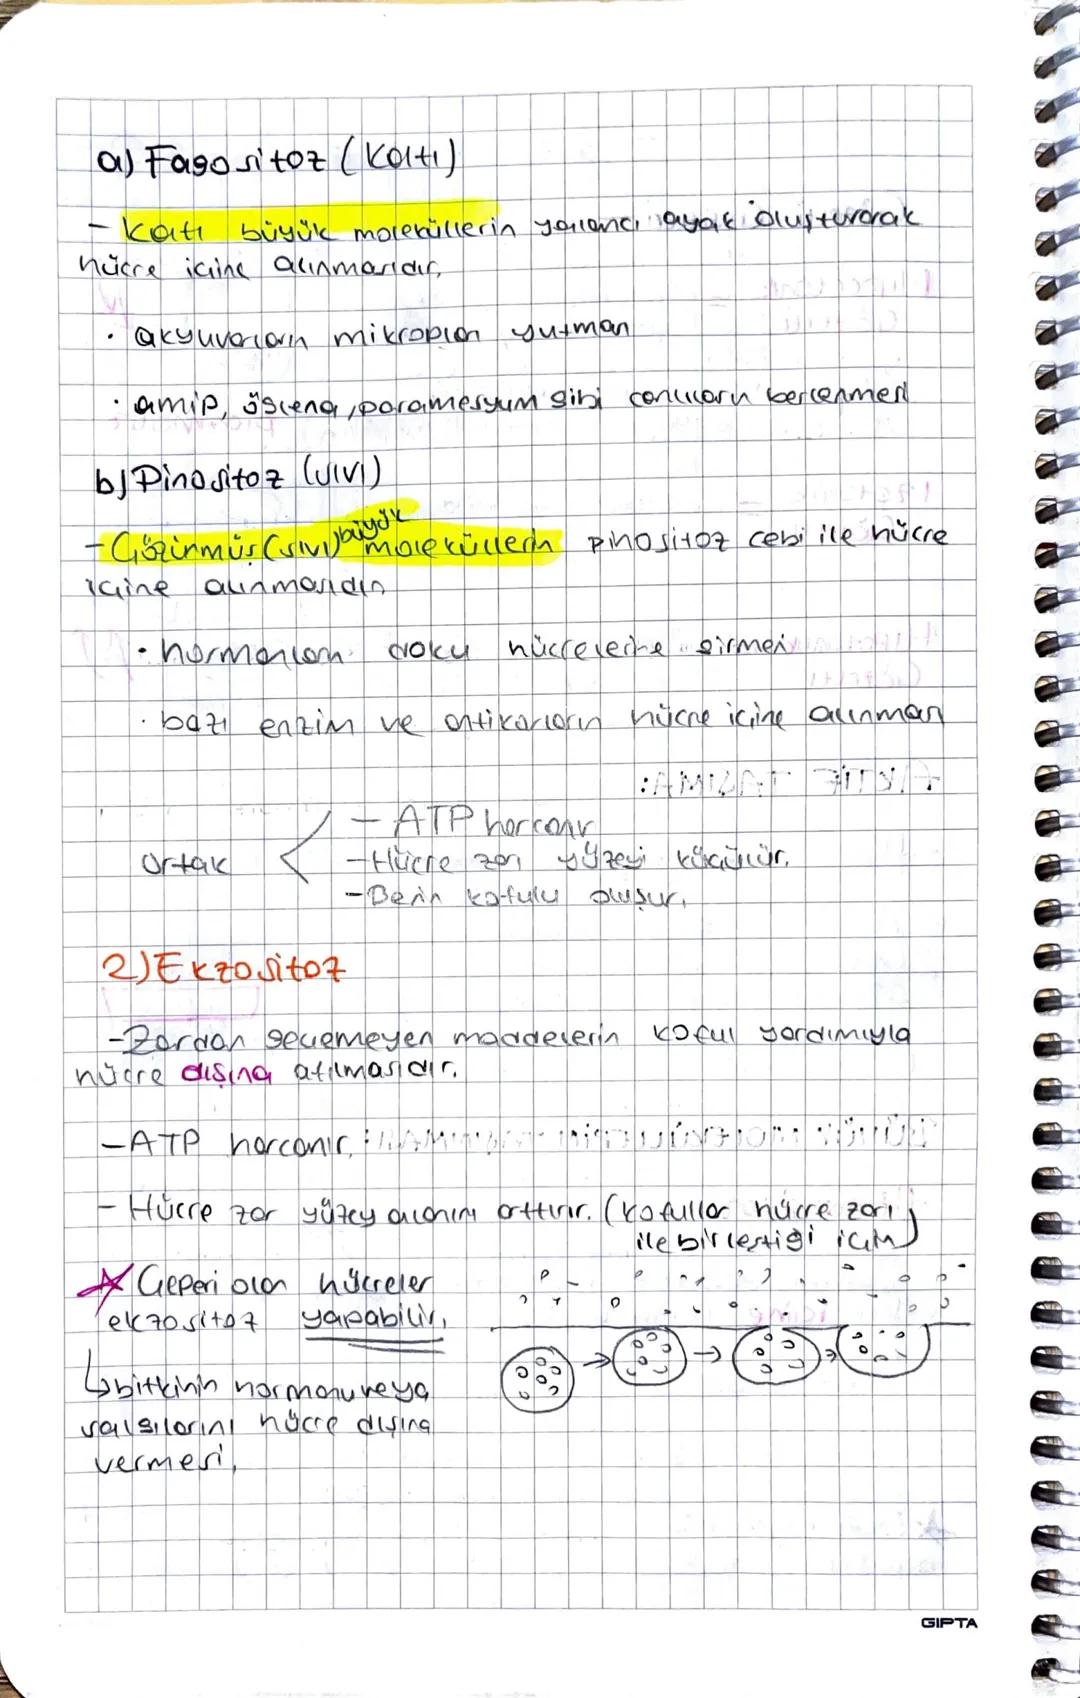 a) Fagositoz (Katı)
- Katı büyük moleküllerin yalancı ayak oluşturarak
hücre içine alınmasıdır.
· akyuvarların mikropları yutması
· amip, öglena, paramesyum gibi canlıların beslenmesi
b) Pinositoz (sıvı)
büyük
- Çözünmüş (sıvı) moleküllerin pinositoz cebi ile hücre
içine alınmasıdır.
· hormonların doku hücrelerine girmesi
· bazı enzim ve antikorların hücre içine alınması
- ATP harcanır
Ortak - Hücre zarı yüzeyi küçülür.
- Besin kofulu oluşur.
2) Ekzositoz
- Zardan geçemeyen maddelerin koful yardımıyla
hücre dışına atılmasıdır.
- ATP harcanır.
- Hücre zar yüzey alanını arttırır. (kofullar hücre zarı
ile birleştiği için)
Çeperi olan hücreler
ekzositoz yapabilir.
bitkinin hormonu veya
salgılarını hücre dışına
vermesi.
GIPTA